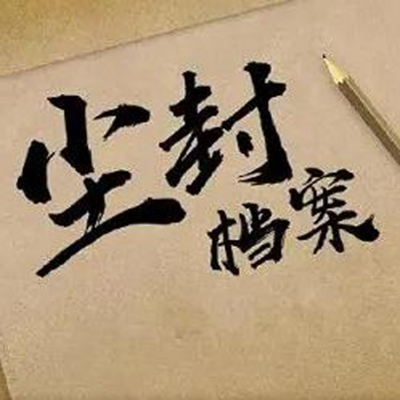 尘封
档案